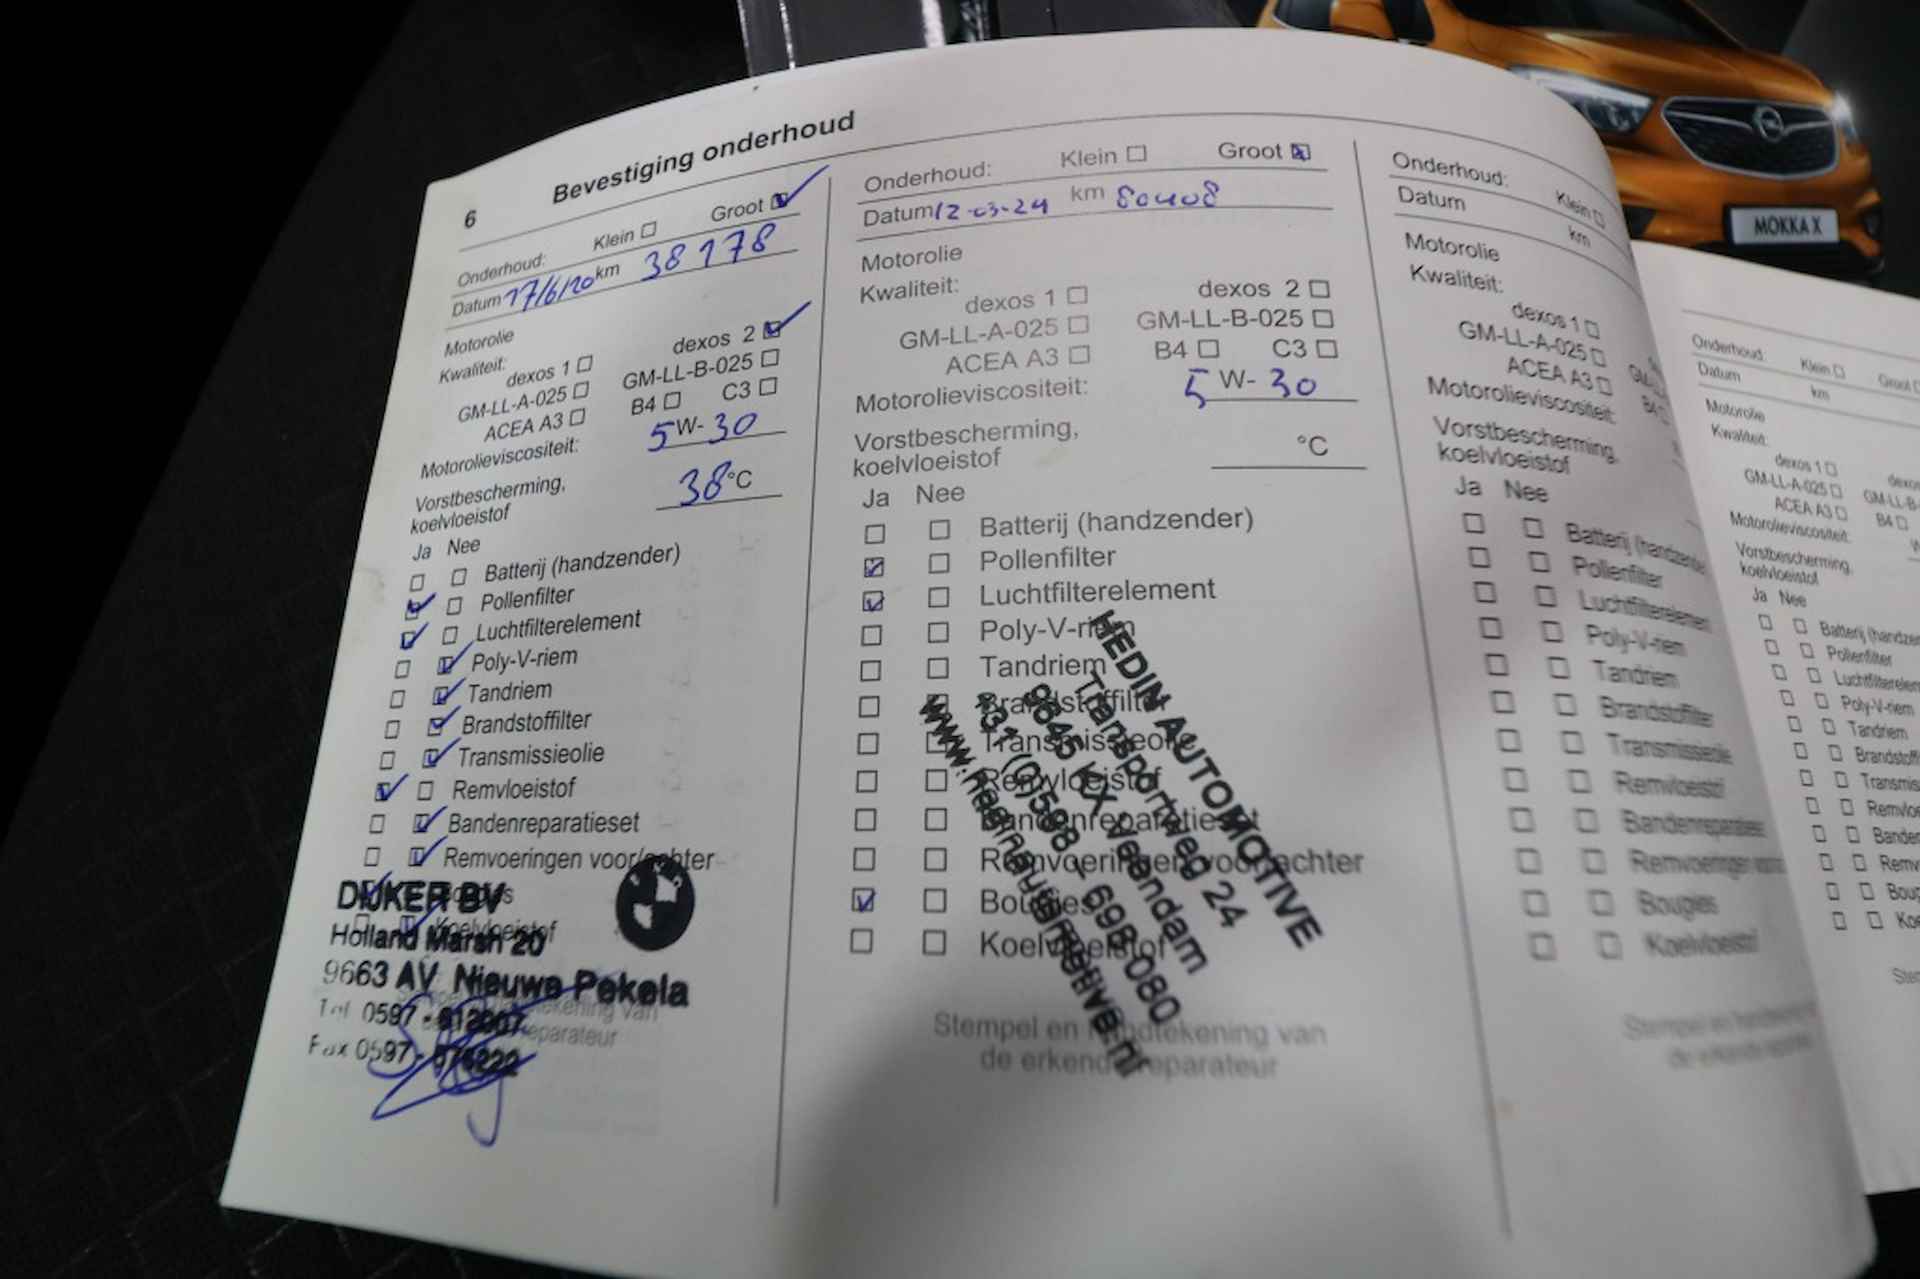 6 Bevestiging onderhoud
Onderhoud: Klein Groot
Datum 17/6/20 km 38178
Motorolie
Kwaliteit: dexos 1 dexos 2
GM-LL-A-025 GM-LL-B-025
ACEA A3 B4 C3
Motorolieviscositeit: 5 W- 30
Vorstbescherming,
koelvloeistof 38 °C
Ja Nee
Batterij (handzender)
Pollenfilter
Luchtfilterelement
Poly-V-riem
Tandriem
Brandstoffilter
Transmissieolie
Remvloeistof
Bandenreparatieset
Remvoeringen voor/achter
Koelvloeistof
DIJKER BV
Holland Marsh 20
9663 AV Nieuwe Pekela
Tel 0597 -
Fax 0597 -
Onderhoud: Klein Groot
Datum 12-03-24 km 80408
Motorolie
Kwaliteit:
dexos 1 dexos 2
GM-LL-A-025 GM-LL-B-025
ACEA A3 B4 C3
Motorolieviscositeit: 5 W- 30
Vorstbescherming,
koelvloeistof °C
Ja Nee
Batterij (handzender)
Pollenfilter
Luchtfilterelement
Poly-V-riem
Tandriem
Brandstoffilter
Transmissieolie
Remvloeistof
Bandenreparatieset
Remvoeringen voor/achter
Bougies
Koelvloeistof
HEDIN AUTOMOTIVE
Transportweg 24
9645 KX Veendam
+31 (0)598 - 698 080
www.hedinautomotive.nl
Stempel en handtekening van
de erkende reparateur
Onderhoud: Klein
Datum km
Motorolie
Kwaliteit:
dexos 1
GM-LL-A-025
ACEA A3
Motorolieviscositeit:
Vorstbescherming,
koelvloeistof
Ja Nee
Batterij
Pollenfilter
Luchtfilterelement
Poly-V-riem
Tandriem
Brandstoffilter
Transmissieolie
Remvloeistof
Bandenreparatieset
Remvoeringen
Bougies
Koelvloeistof
MOKKA X
Onderhoud: Klein Groot
Datum km
Motorolie
Kwaliteit:
dexos 1
GM-LL-A-025
ACEA A3 B4
Motorolieviscositeit:
Vorstbescherming,
koelvloeistof
Ja Nee
Pollenfilter
Poly-V-riem
Tandriem